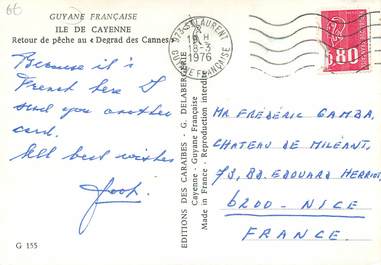 66
GUYANE FRANÇAISE
ILE DE CAYENNE
Retour de pêche au « Degrad des Cannes »
973 ST LAURENT
18-3
1976
GUYANE FRANÇAISE
0,80
Because it's
French here I
send you another
card.
All best wishes
EDITIONS DES CARAIBES - G. DELABERGERIE
Cayenne - Guyane Française
Made in France - Reproduction interdite
MR FRÉDÉRIC GAMBA,
CHATEAU DE MILÉANT,
73, BD. EDOUARD HERRIOT,
6200 - NICE
FRANCE.
G 155